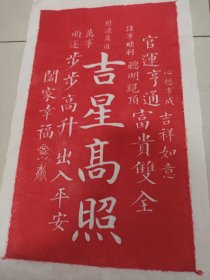 心想事成 吉祥如意
官運亨通 富貴雙全
諸事順利 聰明絕頂
吉星高照
財源廣進
萬事順遂 步步高升 出入平安
闔家幸福